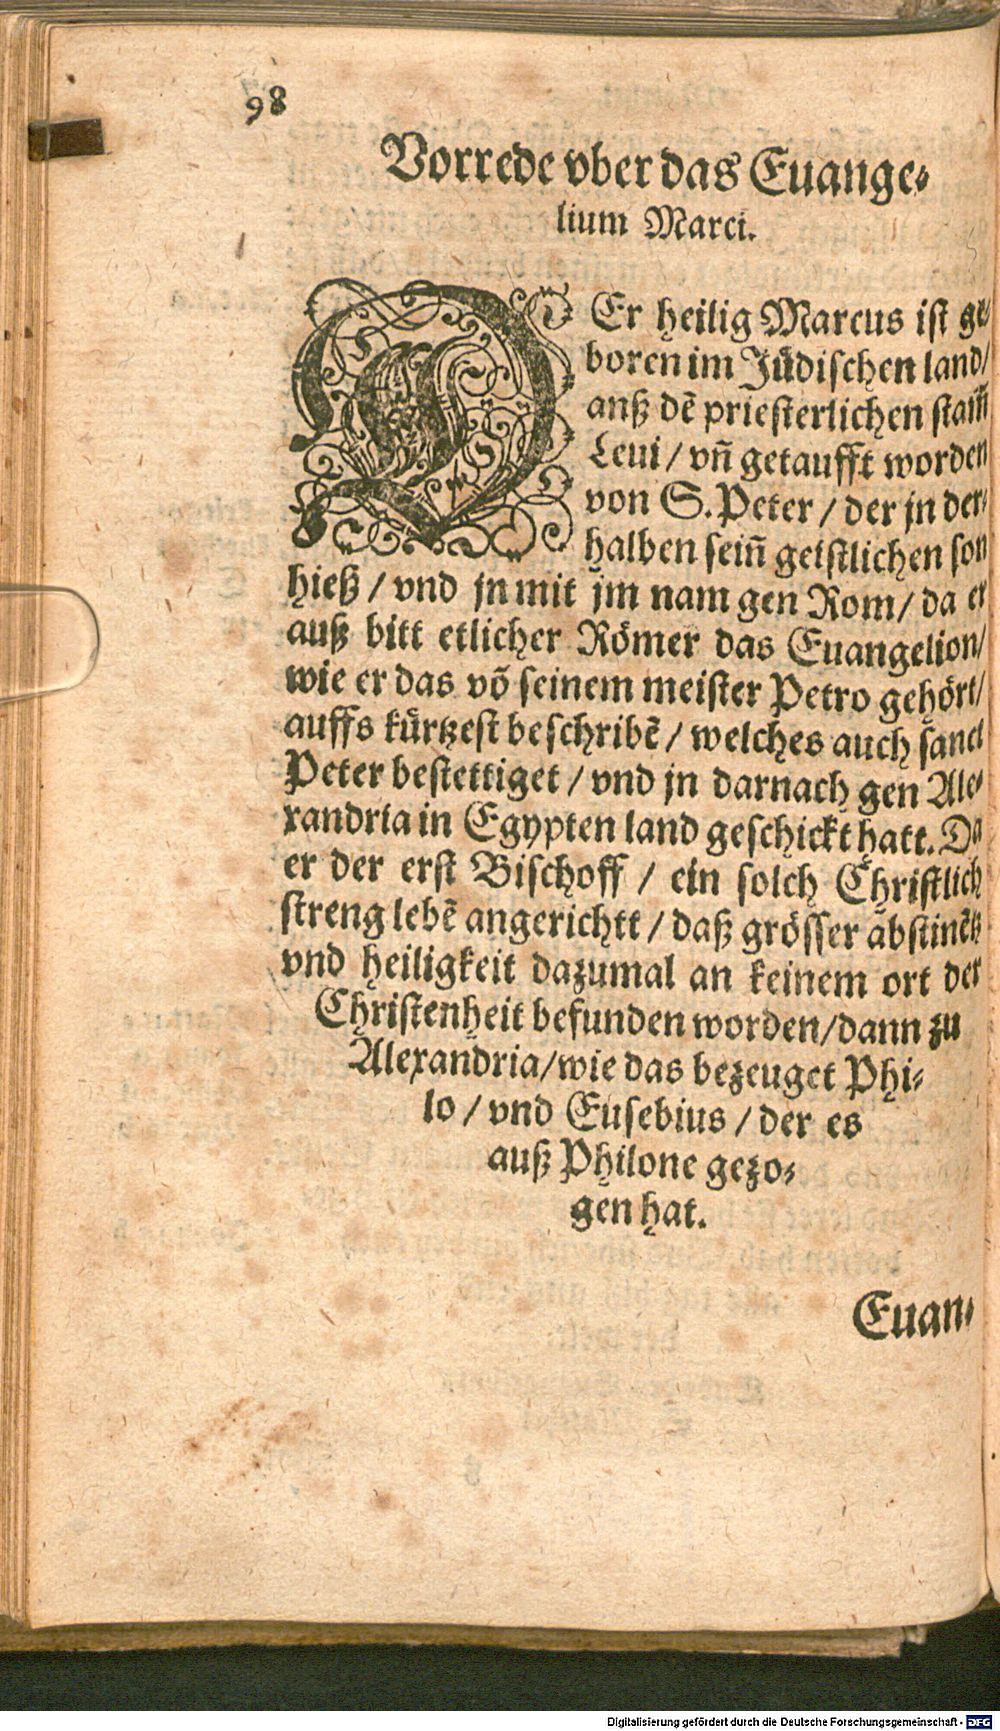 98
Vorrede vber das Euange⸗
lium Marci.
DEr heilig Marcus ist ge⸗
boren im Jüdischen land/
auß dē priesterlichen stam̄
Leui / vñ getaufft worden
von S. Peter / der jn der⸗
halben sein̄ geistlichen son
hieß / vnd jn mit jm nam gen Rom / da er
auß bitt etlicher Römer das Euangelion/
wie er das võ seinem meister Petro gehört/
auffs kürtzest beschribē / welches auch sanct
Peter bestettiget / vnd jn darnach gen Ale⸗
xandria in Egypten land geschickt hatt. Da
er der erst Bischoff / ein solch Christlich
streng lebē angerichtt / daß grösser abstinētz
vnd heiligkeit dazumal an keinem ort der
Christenheit befunden worden/dann zu
Alexandria/wie das bezeuget Phi⸗
lo / vnd Eusebius / der es
auß Philone gezo⸗
gen hat.
Euan⸗
Digitalisierung gefördert durch die Deutsche Forschungsgemeinschaft - DFG